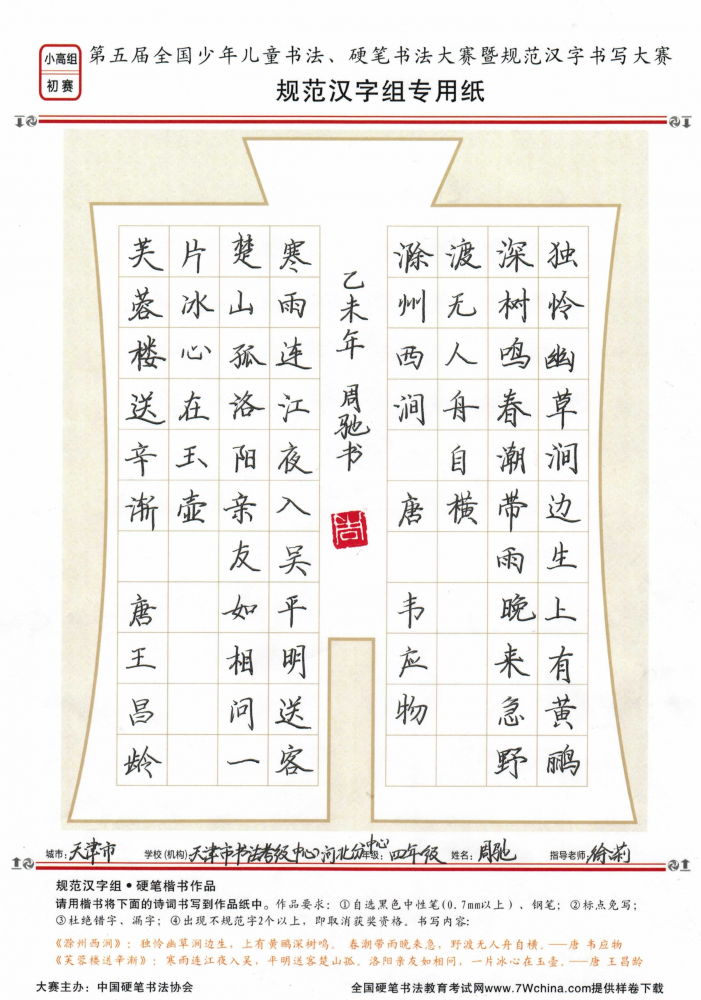 小高组
初赛
第五届全国少年儿童书法、硬笔书法大赛暨规范汉字书写大赛
规范汉字组专用纸
独怜幽草涧边生上有黄鹂
深树鸣春潮带雨晚来急野
渡无人舟自横
滁州西涧 唐 韦应物
乙未年 周驰书
寒雨连江夜入吴平明送客
楚山孤洛阳亲友如相问一
片冰心在玉壶
芙蓉楼送辛渐 唐 王昌龄
城市：天津市 学校(机构)天津市书法考级中心河北分中心 年级：四年级 姓名：周驰 指导老师：徐莉
规范汉字组•硬笔楷书作品
请用楷书将下面的诗词书写到作品纸中。作品要求：①自选黑色中性笔(0.7mm以上)、钢笔；②标点免写；
③杜绝错字、漏字；④出现不规范字2个以上，即取消获奖资格。书写内容：
《滁州西涧》：独怜幽草涧边生，上有黄鹂深树鸣。春潮带雨晚来急，野渡无人舟自横。——唐 韦应物
《芙蓉楼送辛渐》：寒雨连江夜入吴，平明送客楚山孤。洛阳亲友如相问，一片冰心在玉壶。——唐 王昌龄
大赛主办：中国硬笔书法协会 全国硬笔书法教育考试网www.7Wchina.com提供样卷下载